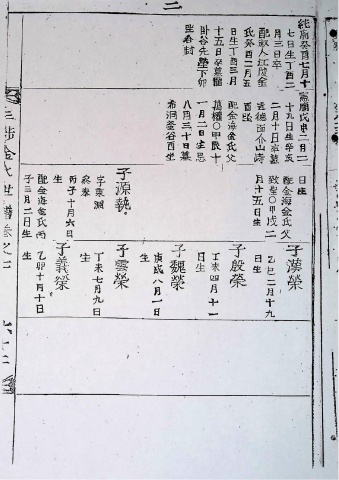 二
純廟癸酉七月十
七日生丁酉二
月三日卒
配淑人江陵金
氏癸酉二月五
日生丁酉三月
十五日卒墓龍
卦谷先塋下卯
坐合封
憲廟戊申二月二
十九日生辛亥
二月十日卒墓
近德面介山峙
酉坐
配金海金氏父
萬權〇甲辰十
一月二日生忌
八月三十日墓
希洞釜谷酉坐
子源執
字衆淵
癸泰
丙子十月六日
生
配金海金氏丙
子三月二日生
日生
配金海金氏父
致聖〇甲戌二
月十五日生
子漢榮
乙巳二月十九
日生
子殷榮
丁未四月十一
日生
子魏榮
庚戌八月一日
生
子雲榮
丁未七月九日
生
子義榮
乙卯十月十日
生
金氏世譜卷之